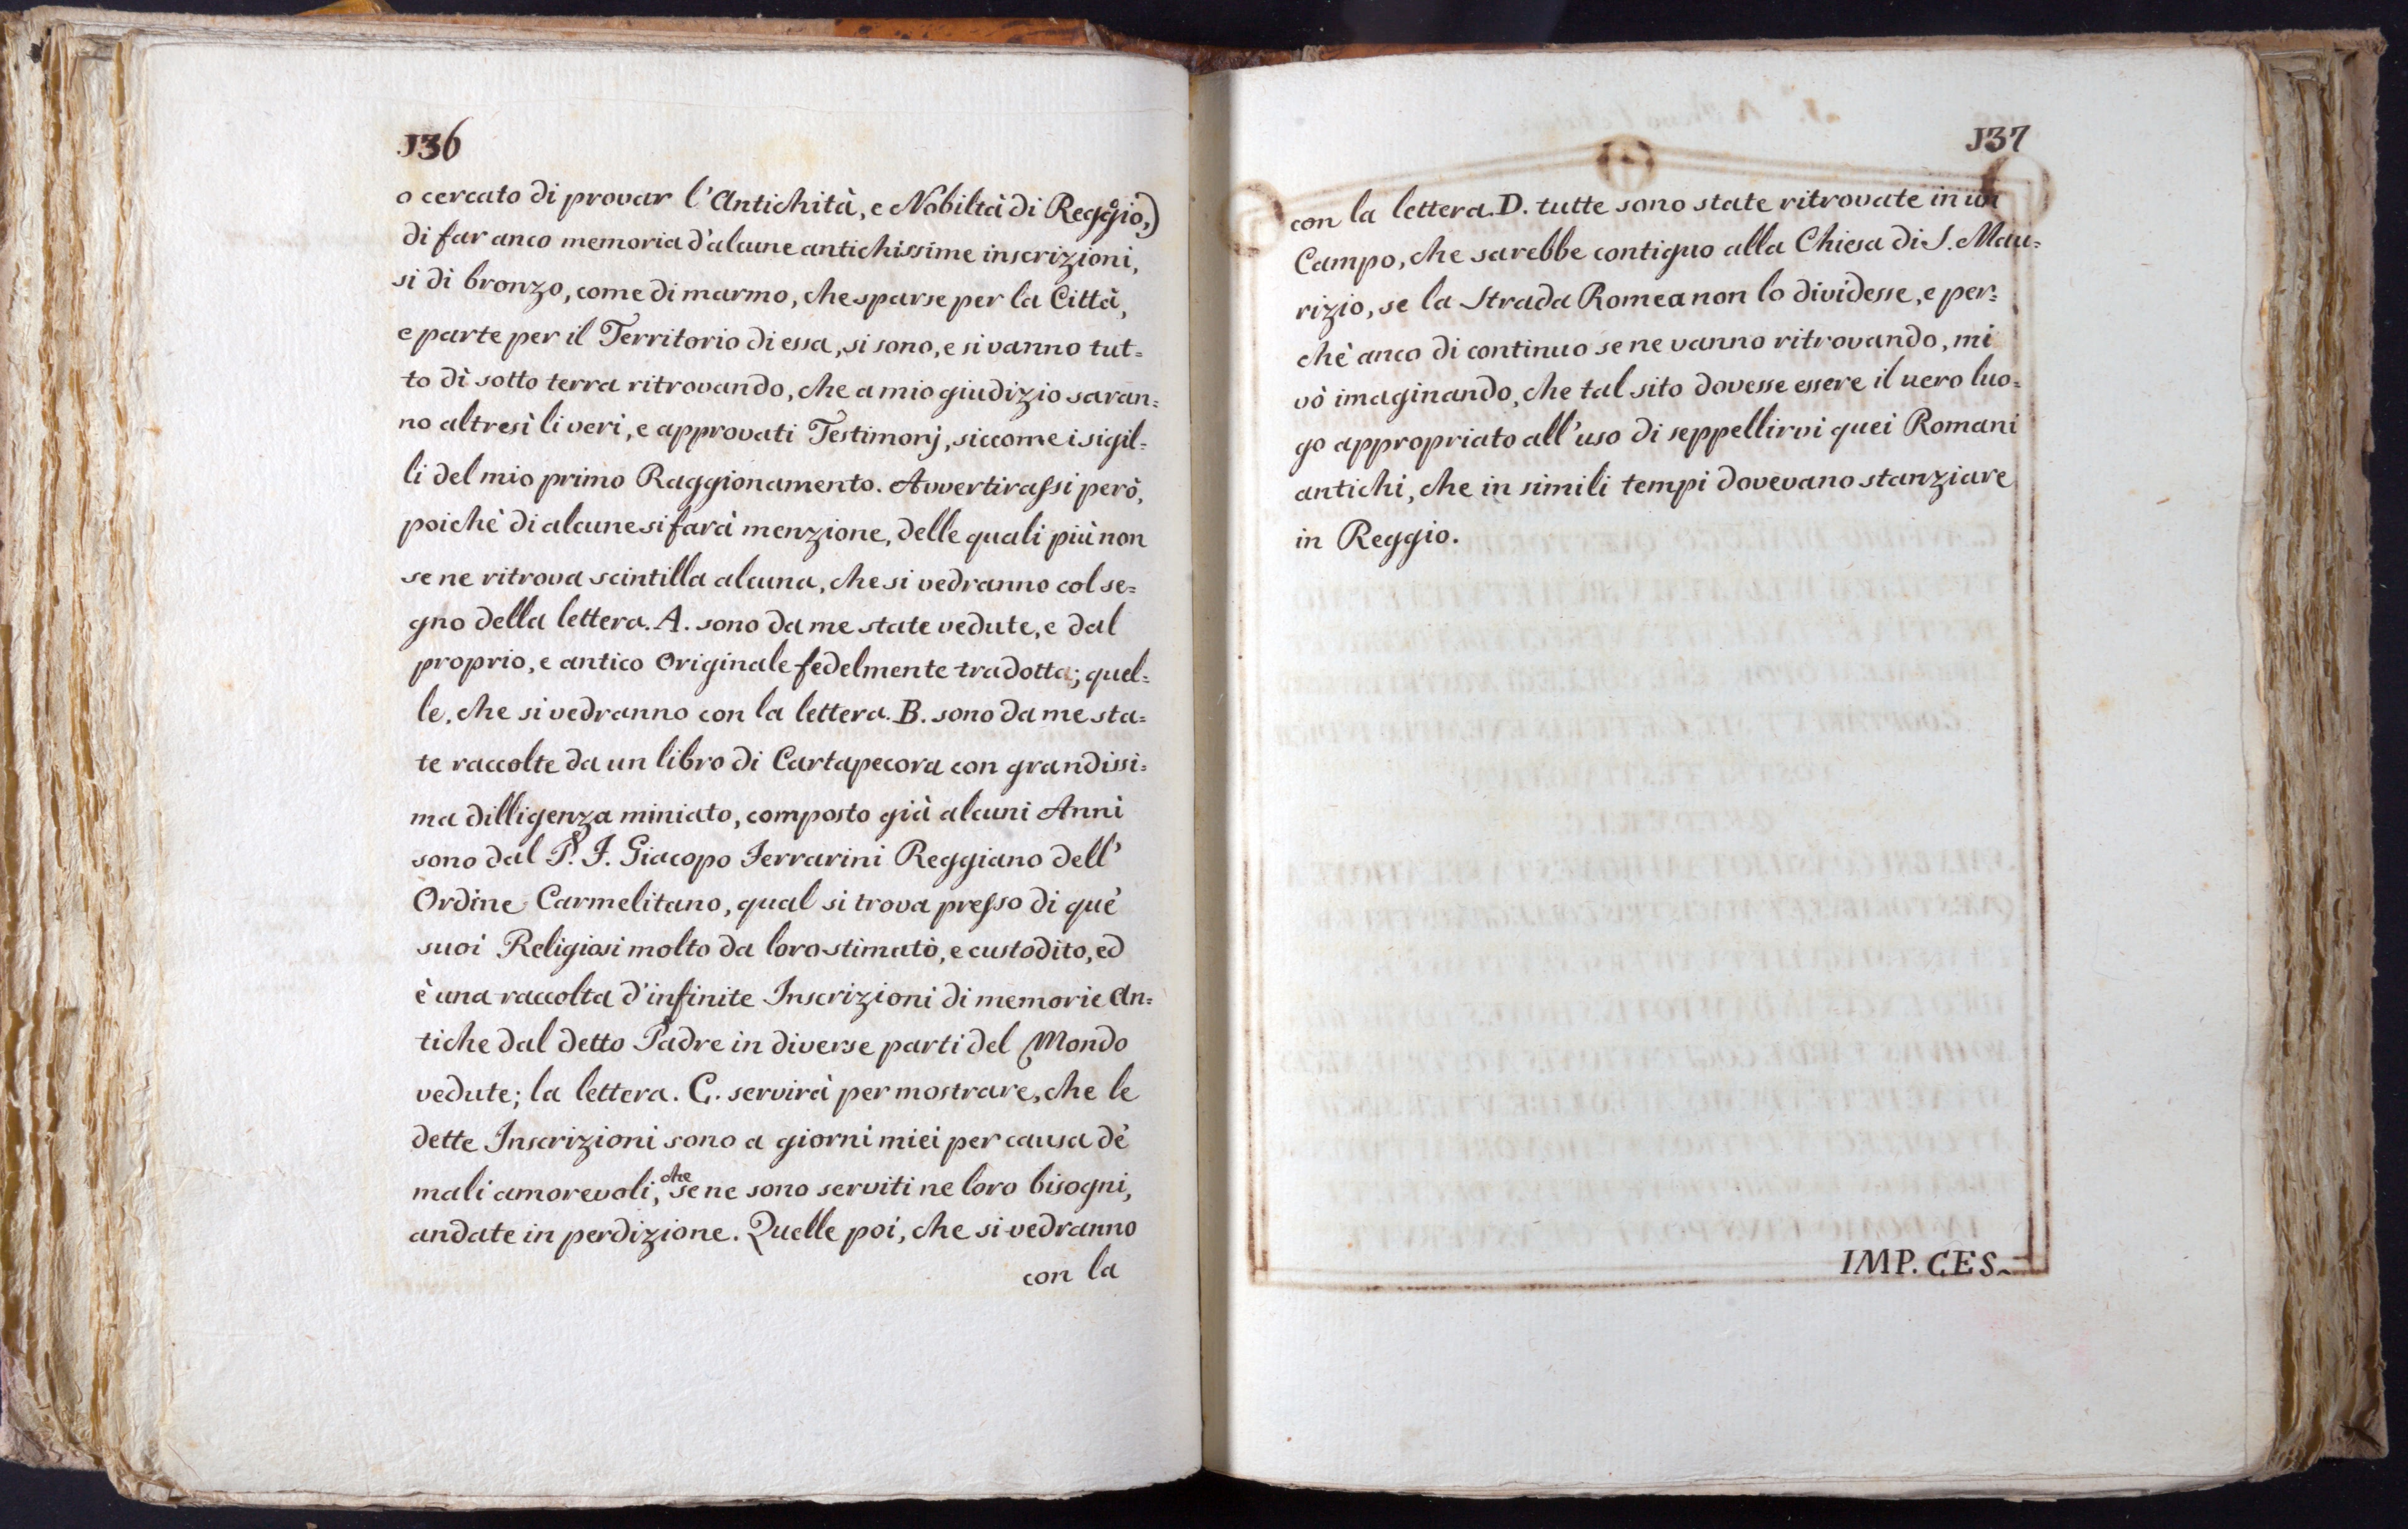 136
o cercato di provar l'Antichità, e Nobiltà di Reggio,)
di far anco memoria d'alcune antichissime inscrizioni,
si di bronzo, come di marmo, che sparse per la Città,
e parte per il Territorio di essa, si sono, e si vanno tut=
to dì sotto terra ritrovando, che a mio giudizio saran=
no altresì li veri, e approvati Testimonj, siccome i sigil=
li del mio primo Raggionamento. Avvertirassi però,
poichè di alcune si farà menzione, delle quali più non
se ne ritrova scintilla alcuna, che si vedranno col se=
gno della lettera. A. sono da me state vedute, e dal
proprio, e antico Originale fedelmente tradotta; quel=
le, che si vedranno con la lettera. B. sono da me sta=
te raccolte da un libro di Cartapecora con grandissi=
ma dilligenza miniato, composto già alcuni Anni
sono dal P. F. Giacopo Ferrarini Reggiano dell'
Ordine Carmelitano, qual si trova presso di què
suoi Religiosi molto da loro stimatò, e custodito, ed
è una raccolta d'infinite Inscrizioni di memorie An=
tiche dal detto Padre in diverse parti del Mondo
vedute; la lettera. C. servirà per mostrare, che le
dette Inscrizioni sono a giorni miei per causa dè
mali amorevoli, che se ne sono serviti ne loro bisogni,
andate in perdizione. Quelle poi, che si vedranno
con la
137
con la lettera. D. tutte sono state ritrovate in un
Campo, che sarebbe contiguo alla Chiesa di S. Mau=
rizio, se la Strada Romea non lo dividesse, e per=
chè anco di continuo se ne vanno ritrovando, mi
vò imaginando, che tal sito dovesse essere il uero luo=
go appropriato all'uso di seppellirvi quei Romani
antichi, che in simili tempi dovevano stanziare
in Reggio.
IMP. CES.